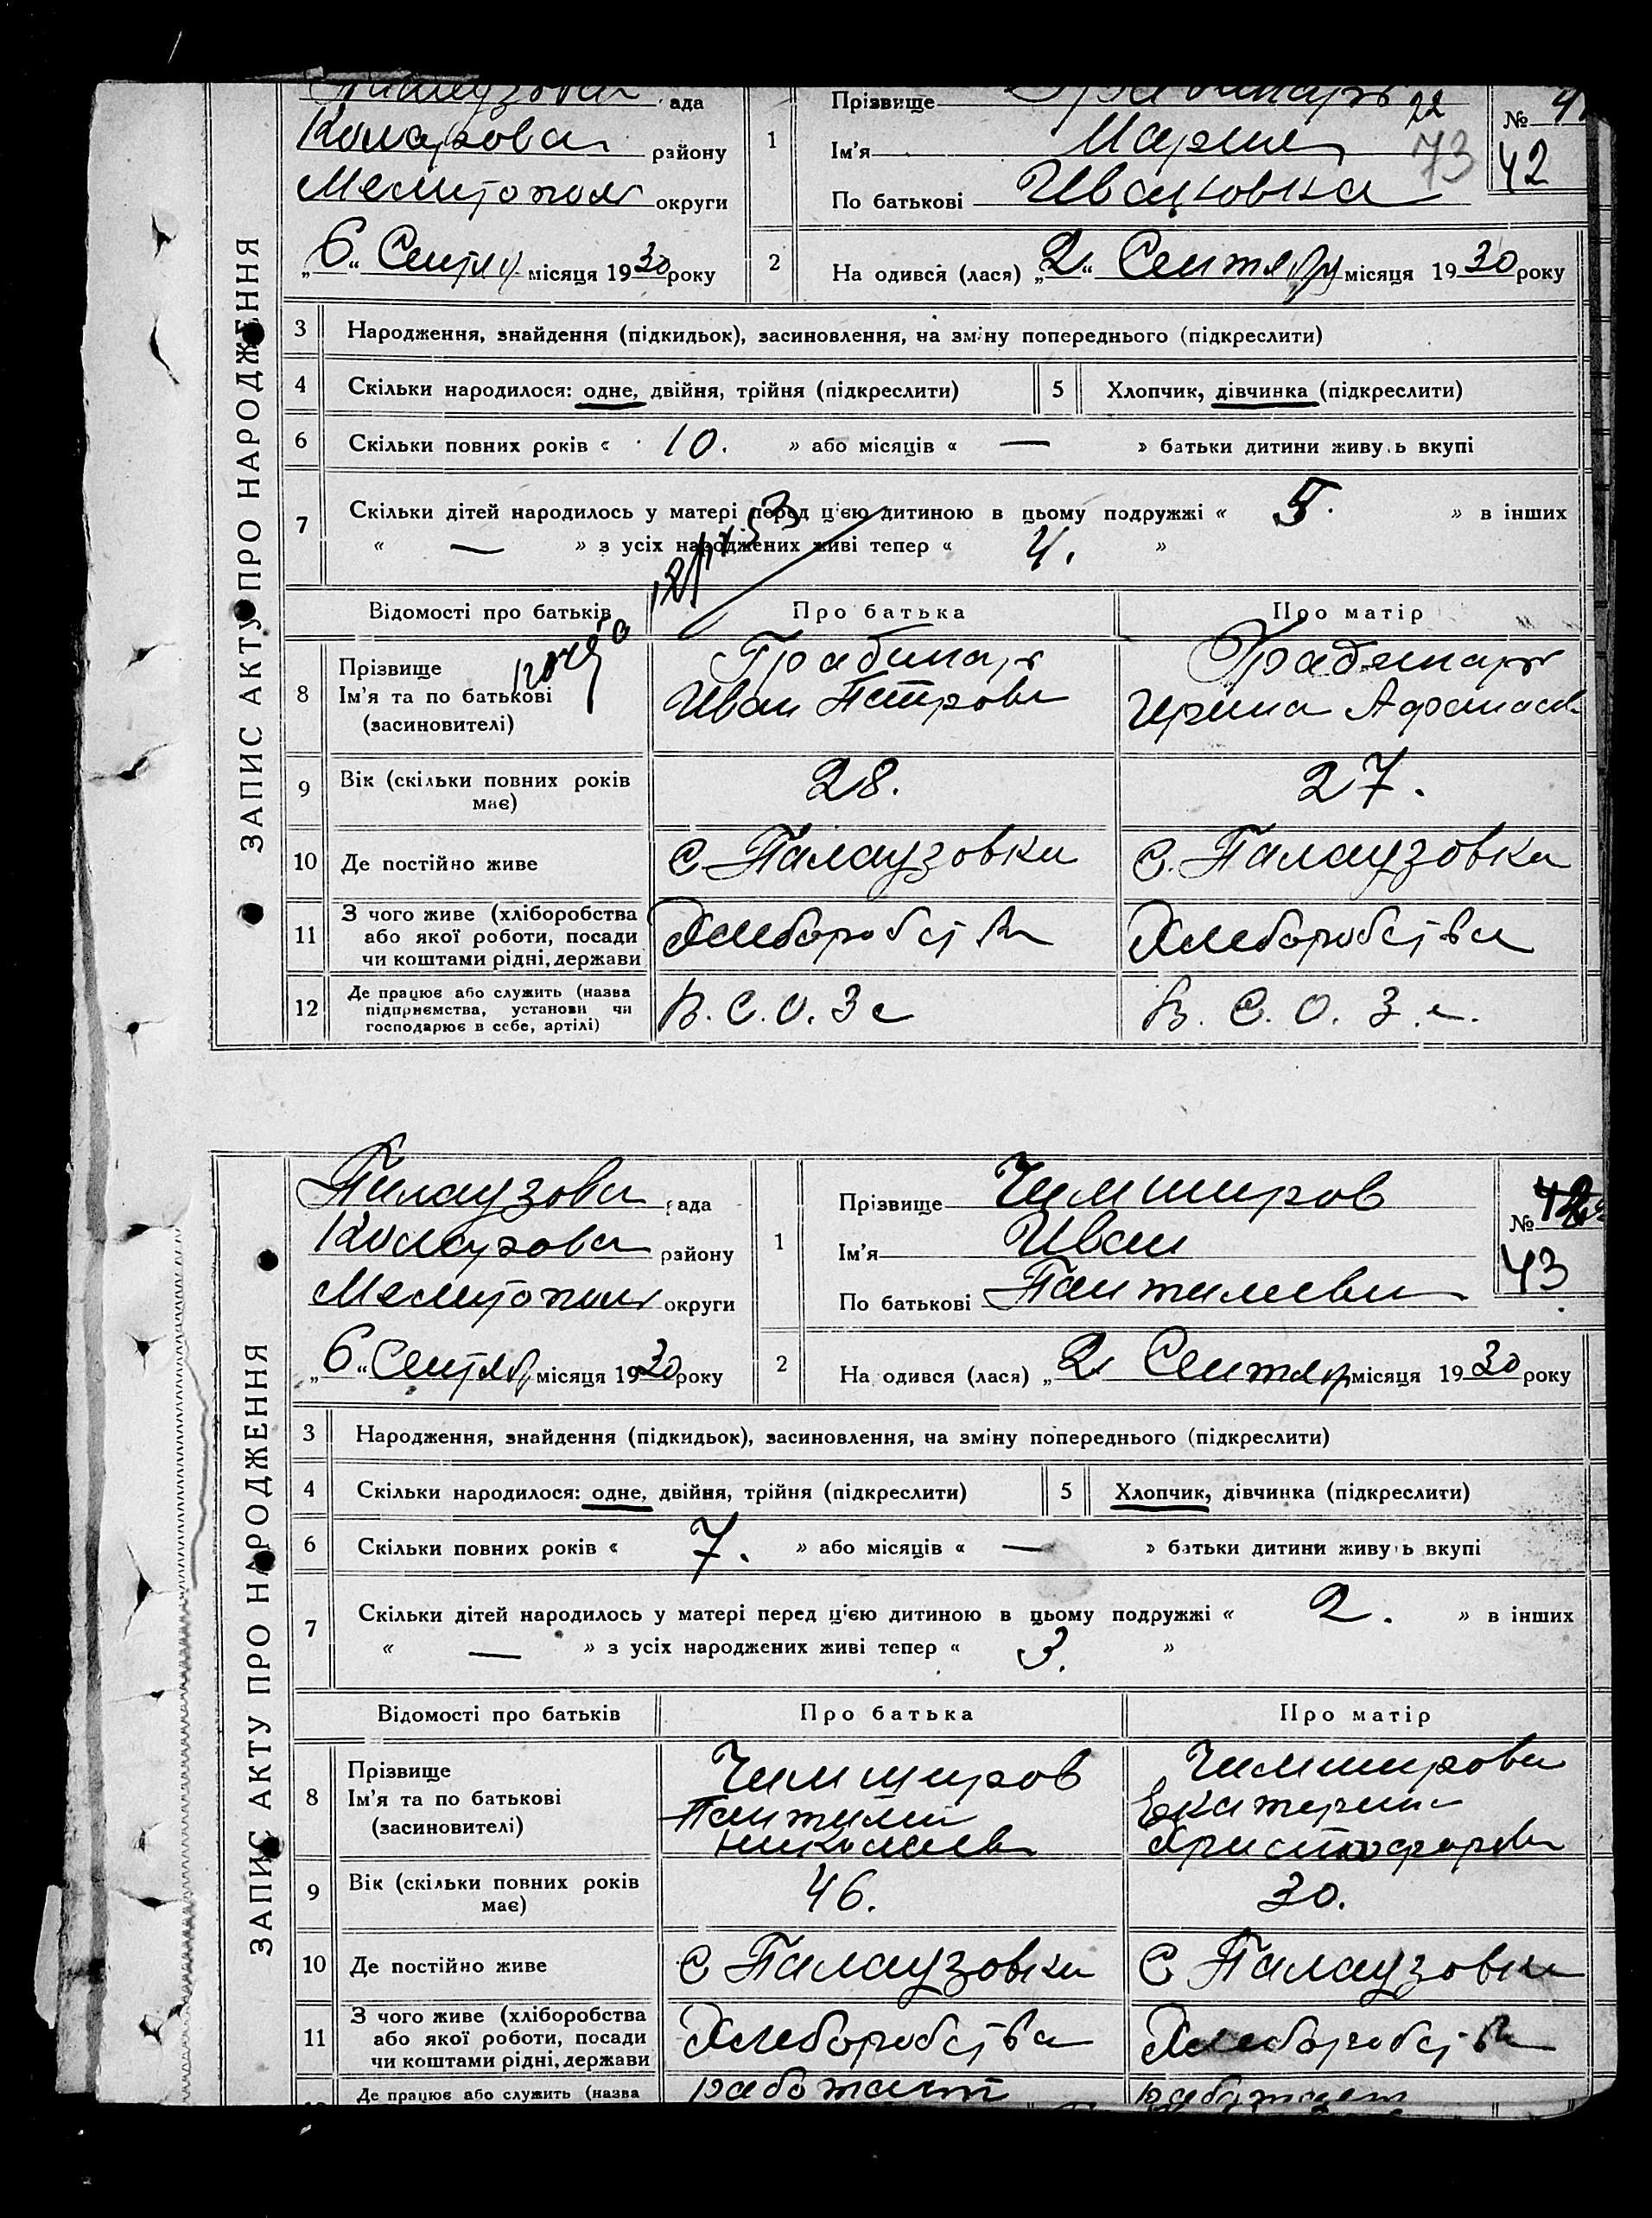 ЗАПИС АКТУ ПРО НАРОДЖЕННЯ
рада
Коларова району
Мелитополь округи
„6“ Сентяб місяця 1930 року
1
Прізвище
Ім'я Мария
По батькові Ивановна
22
73
№
42
2
На одився (лася) „2“ Сентября місяця 1930 року
3 Народження, знайдення (підкидьок), засиновлення, на зміну попереднього (підкреслити)
4 Скільки народилося: одне, двійня, трійня (підкреслити)
5 Хлопчик, дівчинка (підкреслити)
6 Скільки повних років « 10. » або місяців « — » батьки дитини живуть вкупі
7 Скільки дітей народилось у матері перед ц'єю дитиною в цьому подружжі « 5. » в інших
« — » з усіх народжених живі тепер « 4. »
Відомості про батьків Про батька Про матір
8 Прізвище
Ім'я та по батькові
(засиновителі)
Грабинарь
Иван Петрова
Ирина Афанасов
9 Вік (скільки повних років
має)
28. 27.
10 Де постійно живе С. Палаузовка С. Палаузовка
11 З чого живе (хліборобства
або якої роботи, посади
чи коштами рідні, держави
Хлеборобства Хлеборобства
12 Де працює або служить (назва
підприємства, установи чи
господарює в себе, артілі)
В. С. О. З е В. С. О. З. е.
ЗАПИС АКТУ ПРО НАРОДЖЕННЯ
Палаузова рада
Коларова району
Мелитополь округи
„6“ Сентяб місяця 1930 року
1
Прізвище Чимширов
Ім'я Иван
По батькові Пантилеева
№ 42
43
2
На одився (лася) „2 Сентяр місяця 1930 року
3 Народження, знайдення (підкидьок), засиновлення, на зміну попереднього (підкреслити)
4 Скільки народилося: одне, двійня, трійня (підкреслити)
5 Хлопчик, дівчинка (підкреслити)
6 Скільки повних років « 7. » або місяців « — » батьки дитини живуть вкупі
7 Скільки дітей народилось у матері перед ц'єю дитиною в цьому подружжі « 2. » в інших
« — » з усіх народжених живі тепер « 3. »
Відомості про батьків Про батька Про матір
8 Прізвище
Ім'я та по батькові
(засиновителі)
Чимширов
Пантилей
Николаев
Чимширова
Екатерина
Христофорова
9 Вік (скільки повних років
має)
46. 30.
10 Де постійно живе С Палаузовка С Палаузовка
11 З чого живе (хліборобства
або якої роботи, посади
чи коштами рідні, держави
Хлеборобства Хлеборобства
Де працює або служить (назва
работает работает